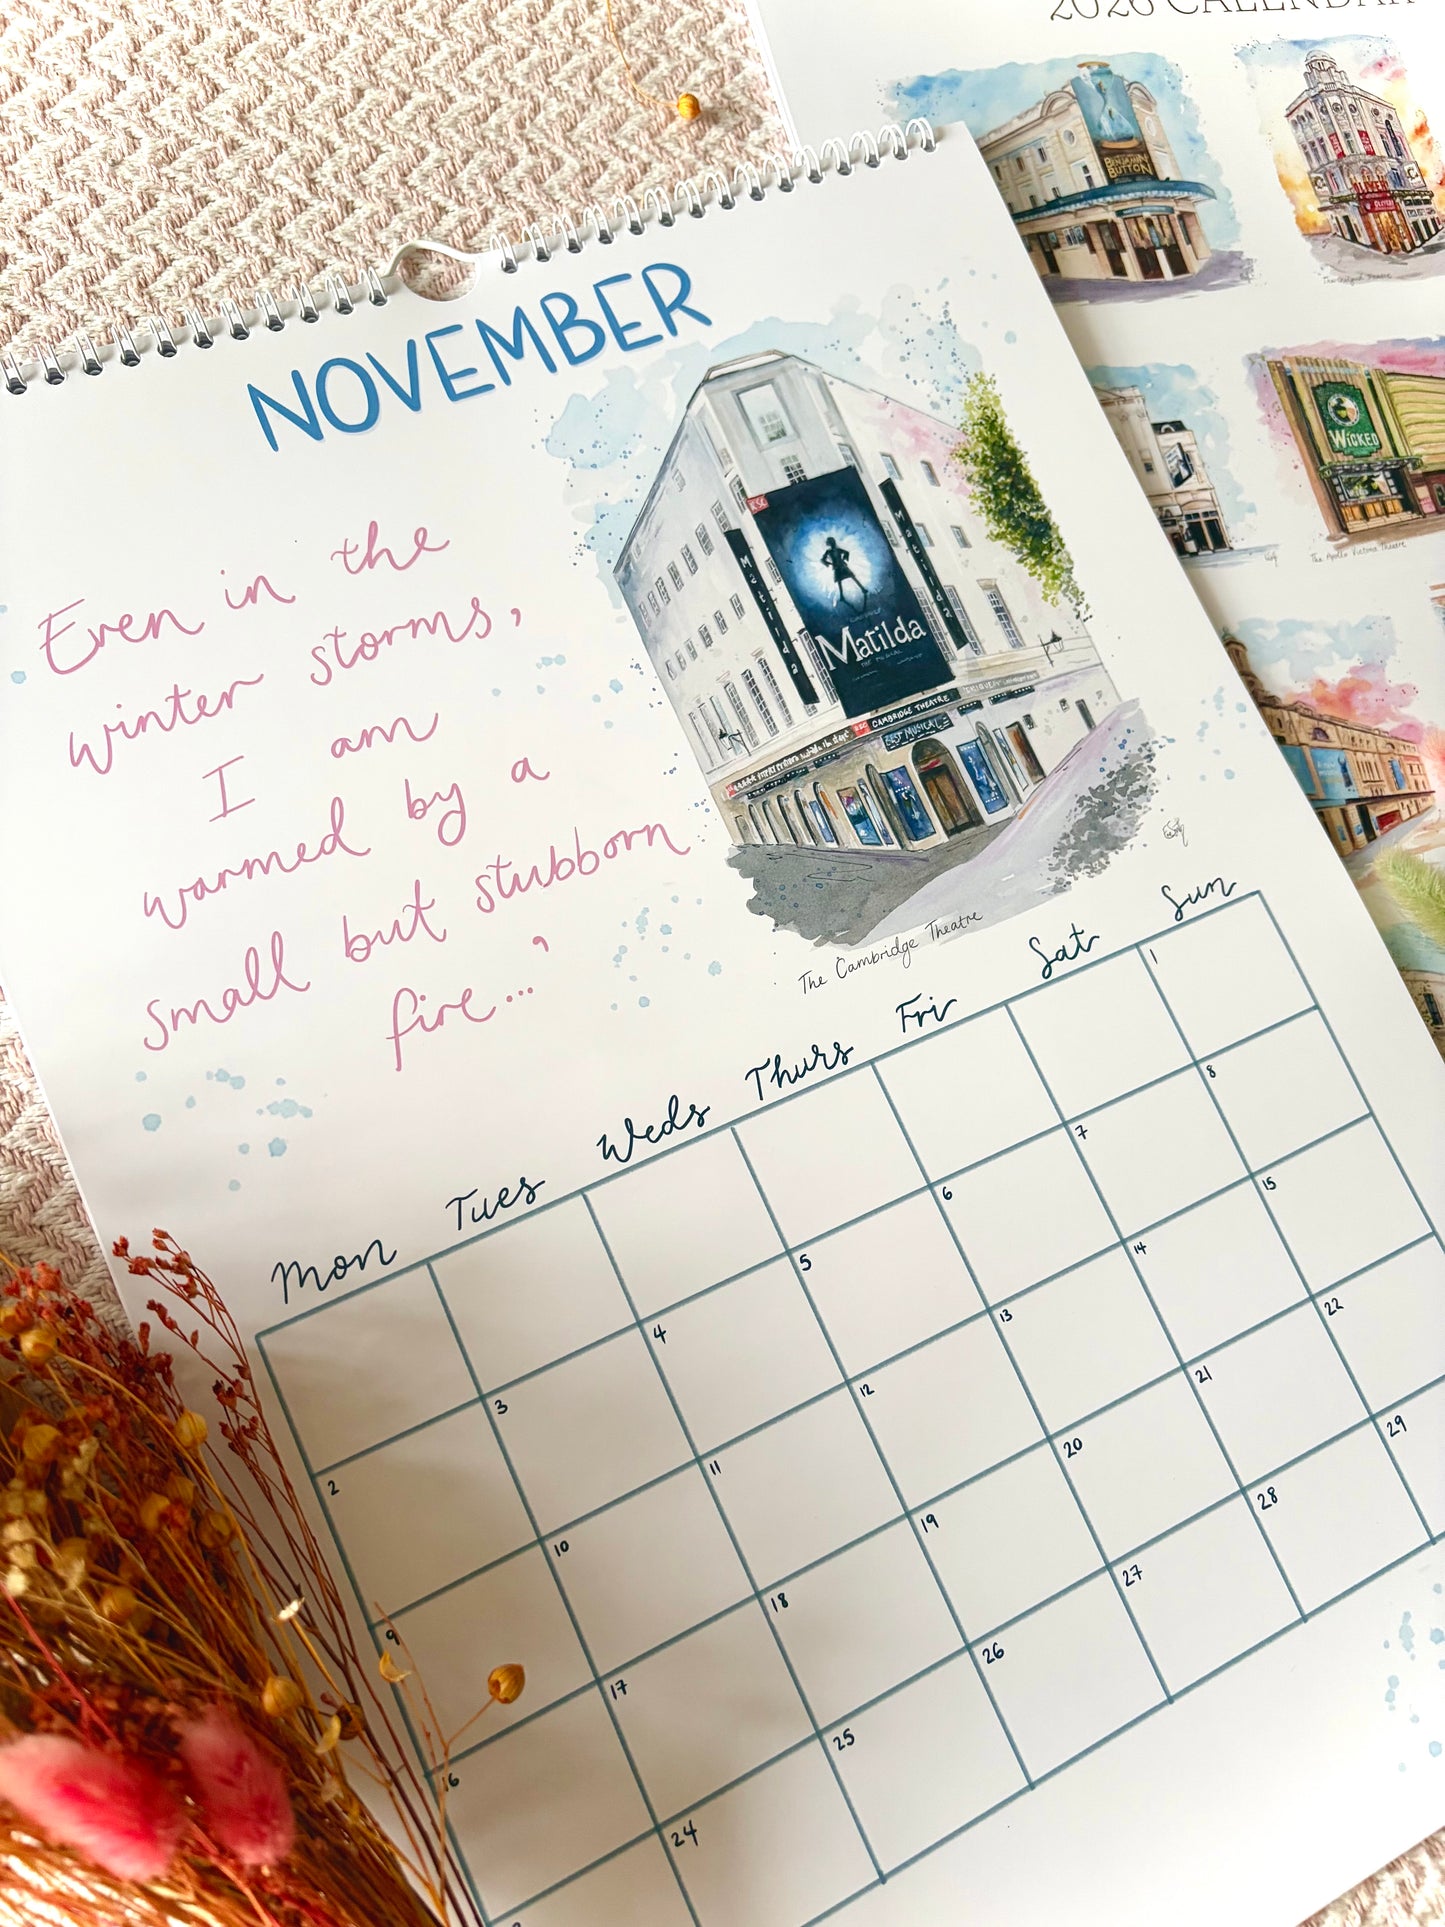 2026 CALENDAR
NOVEMBER
Even in the
winter storms,
I am
warmed by a
small but stubborn
fire...'
RSC
Matilda
Matilda
Matilda
THE MUSICAL
CAMBRIDGE THEATRE
BEST MUSICAL
The Cambridge Theatre
Mon Tues Weds Thurs Fri Sat Sun
1
2 3 4 5 6 7 8
9 10 11 12 13 14 15
16 17 18 19 20 21 22
24 25 26 27 28 29
BENJAMIN
BUTTON
OLIVER!
WICKED
The Apollo Victoria Theatre